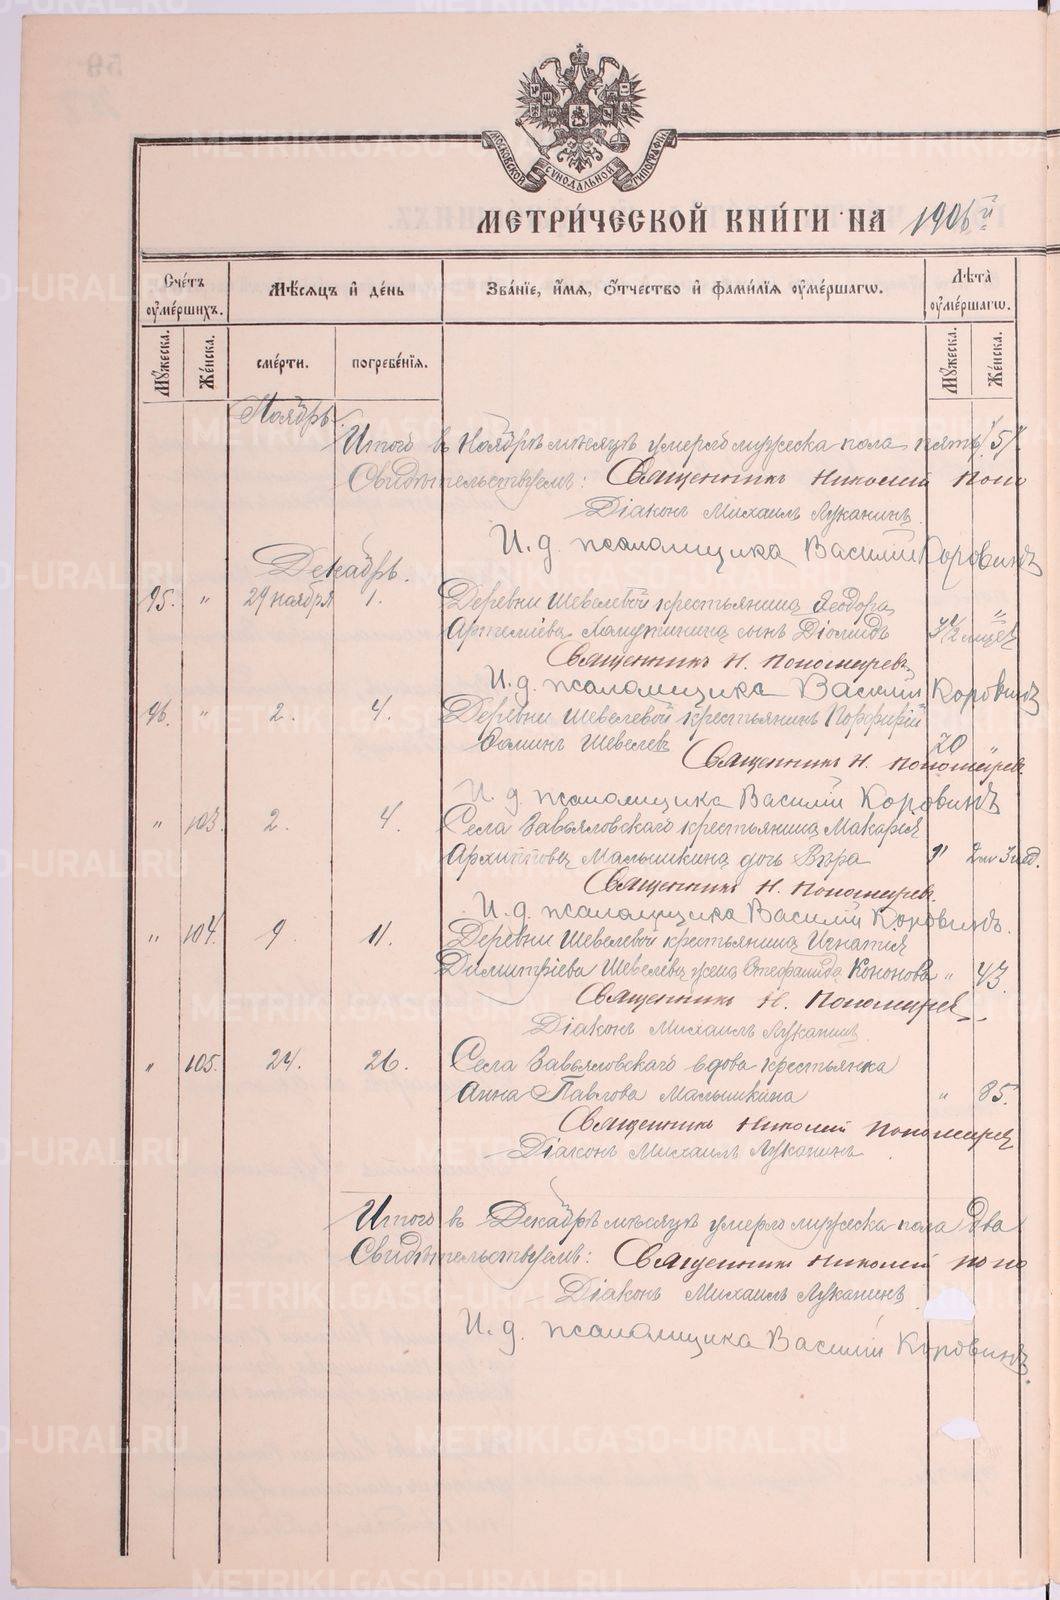 МОСКОВСКОЙ СѴНОДАЛЬНОЙ ТИПОГРАФІИ
МЕТРИ́ЧЕСКОЙ КНИ́ГИ НА 1906й
Сче́тъ ᲂу҆ме́ршихъ.
Мѣ́сяцъ и҆ де́нь
Зва́нїе, и҆́мѧ, ѻ҆́тчество и҆ фами́лїѧ ᲂу҆ме́ршагѡ.
Лѣ̀та ᲂу҆ме́ршагѡ.
Мꙋ́жеска. Же́нска. сме́рти. погребе́нїѧ. Мꙋ́жеска. Же́нска.
Ноябрь.
Итого въ Ноябрѣ мѣсяцѣ умерло мужеска пола пять /5/
Свидѣтельствуемъ: Священникъ Николай Поно
Діаконъ Михаилъ Луканинъ
И. д. псаломщика Василій Коровинъ
Декабрь.
95. " 29 ноября 1. Деревни Шевелевой крестьянина Ѳеодора
Артеміева сынъ Діомидъ 3 1/2 "
Священникъ Н. Пономаревъ
И. д. псаломщика Василій Коровинъ
96. " 2. 4. Деревни Шевелевой крестьянинъ Порфирій
Ѳоминъ Шевелевъ 20
Священникъ Н. Пономарев
И. д. псаломщика Василій Коровинъ
" 103. 2. 4. Села Завьяловскаго крестьянина Макарія
Архиппова Малышкина дочь Вѣра " 2 м 3 нед.
Священникъ Н. Пономарев.
И. д. псаломщика Василій Коровинъ.
" 104. 9. 11. Деревни Шевелевой крестьянина Игнатія
Димитріева Шевелева жена Стефанида Кононова " 43.
Священникъ Н. Пономарев
Діаконъ Михаилъ Луканинъ
" 105. 24. 26. Села Завьяловскаго вдова крестьянка
Анна Павлова Малышкина " 85.
Священникъ Николай Пономарев
Діаконъ Михаилъ Луканинъ
Итого въ Декабрѣ мѣсяцѣ умерло мужеска пола два
Свидѣтельствуемъ: Священникъ Николай Поно
Діаконъ Михаилъ Луканинъ
И. д. псаломщика Василій Коровинъ.
METRIKI.GASO-URAL.RU